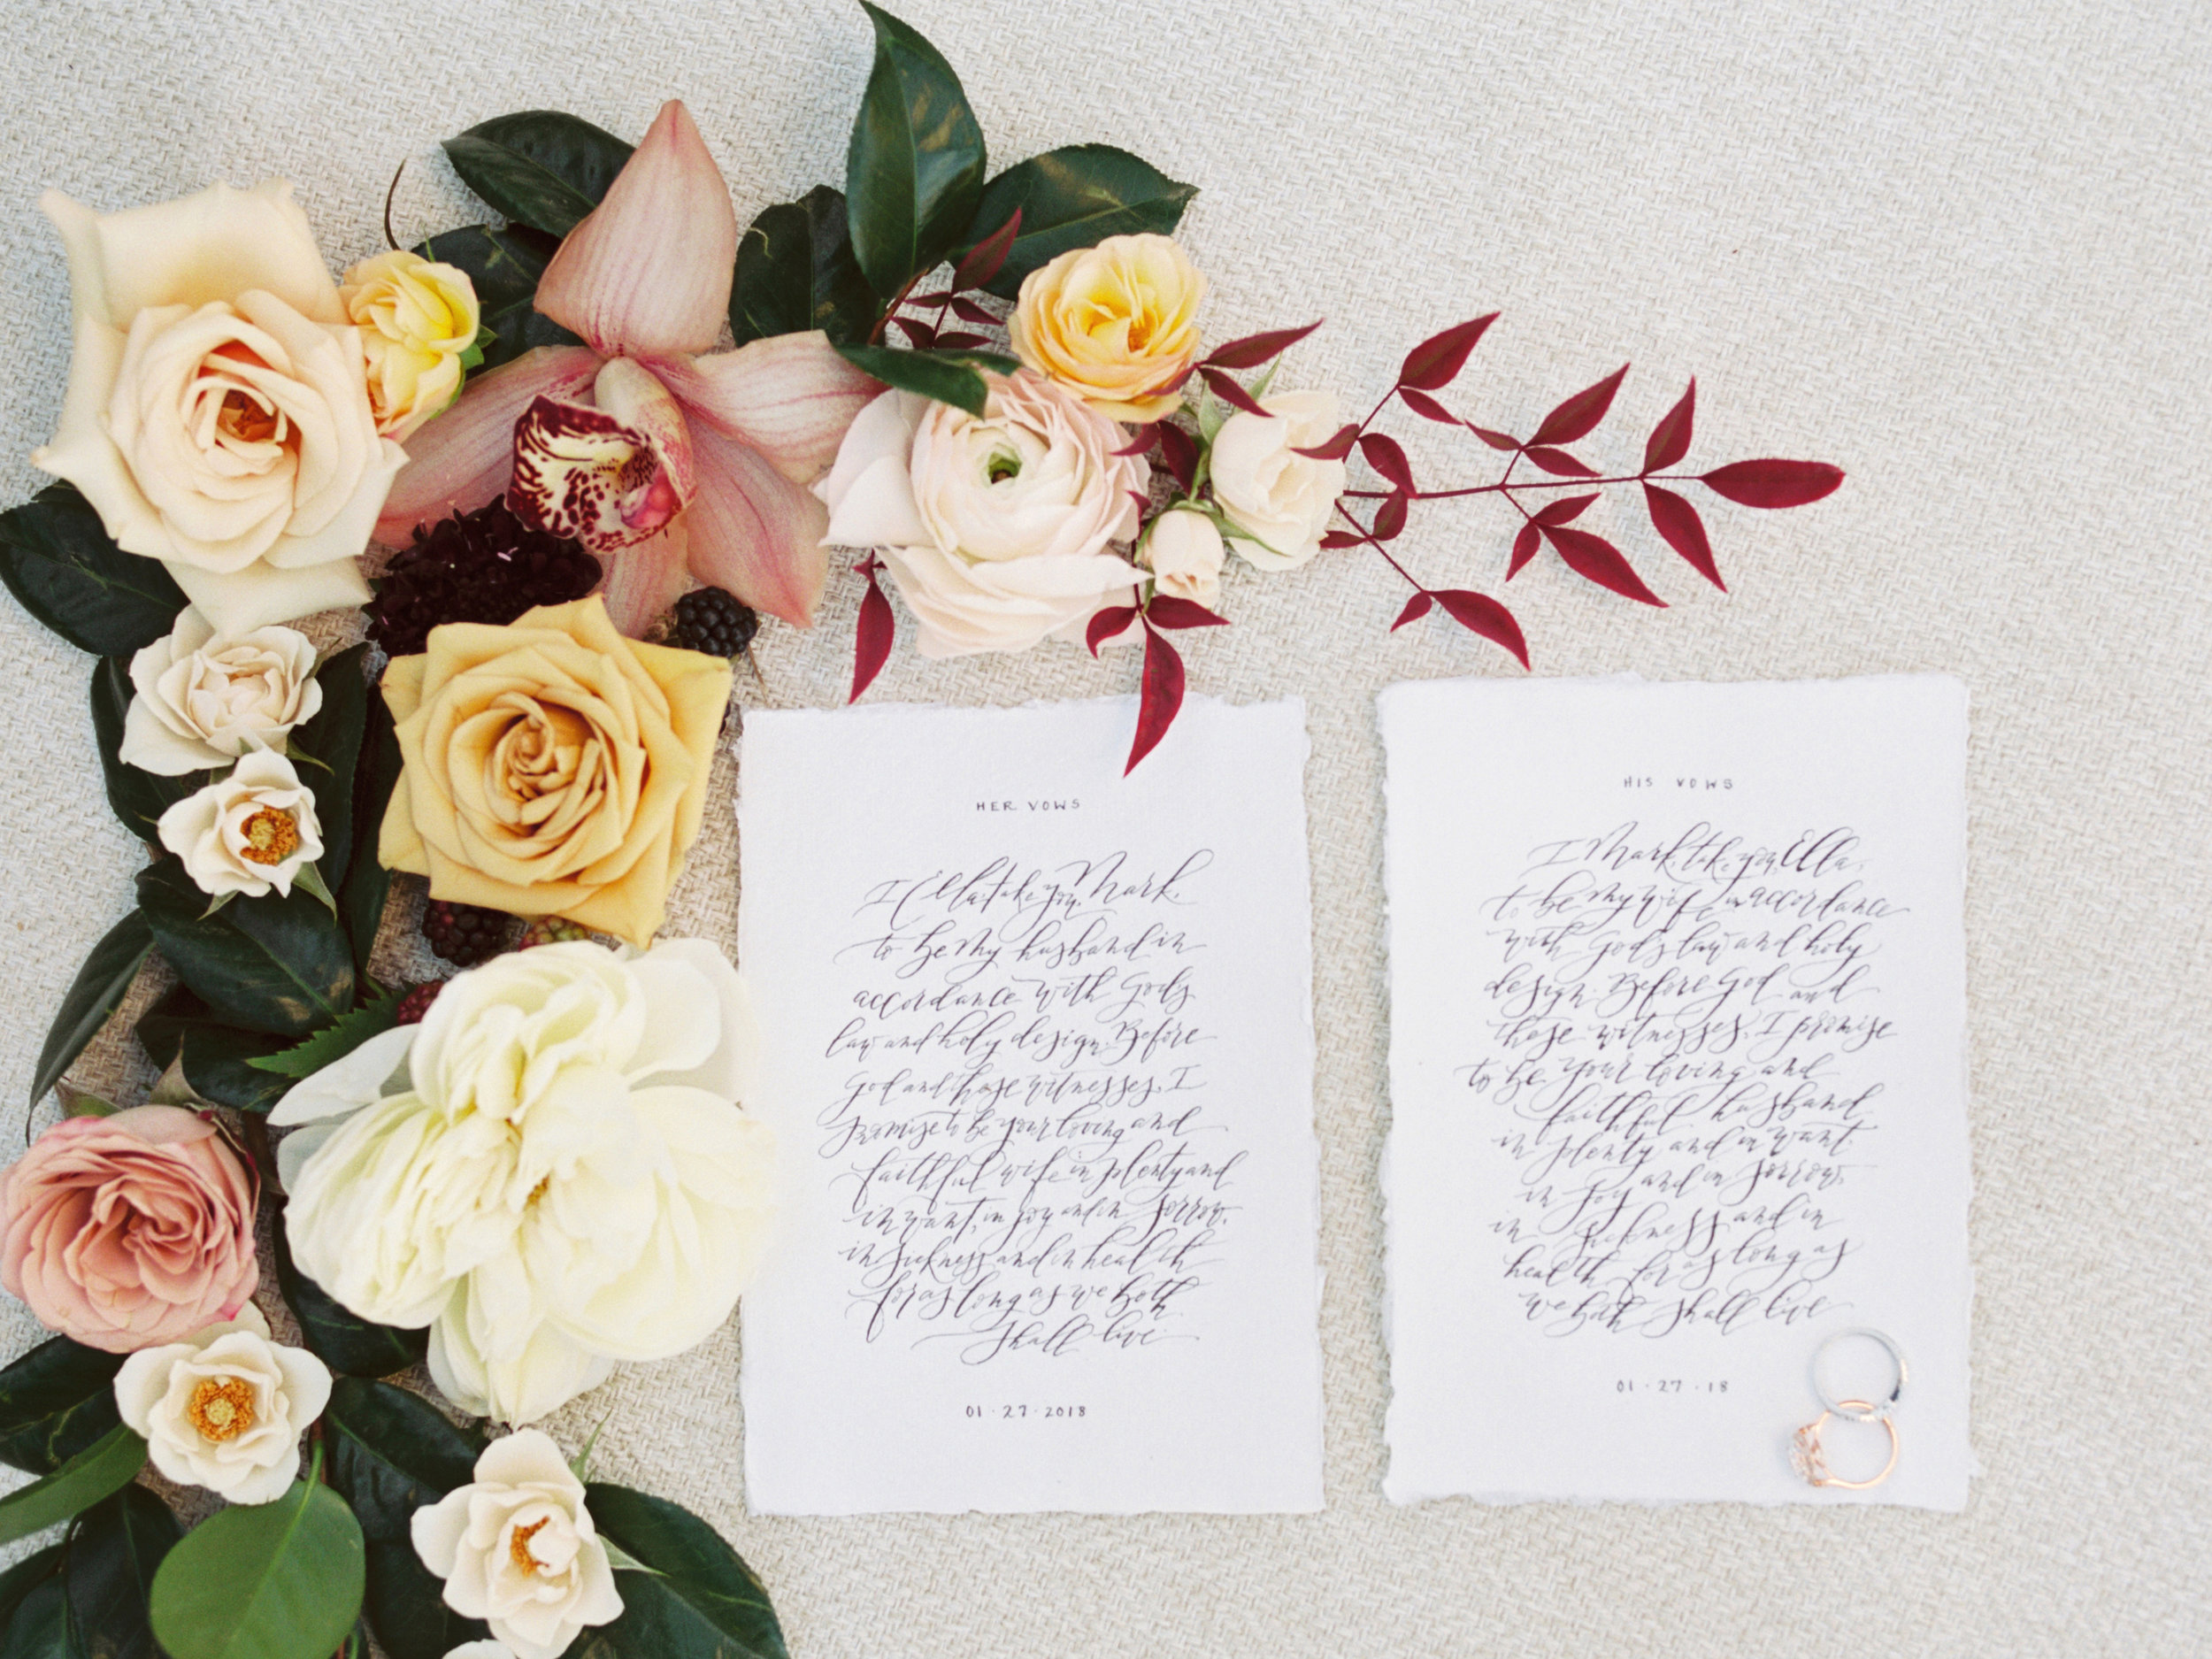 HER VOWS
I Ella, take you, Mark,
to be my husband in
accordance with Gods
law and holy design. Before
God and these witnesses, I
promise to be your loving and
faithful wife in plenty and
in want, in joy and in sorrow,
in sickness and in health
for as long as we both
shall live.
01 · 27 · 2018
HIS VOWS
I Mark, take you, Ella,
to be my wife in accordance
with gods law and holy
design. Before God and
these witnesses, I promise
to be your loving and
faithful husband
in plenty and in want.
in joy and in sorrow,
in sickness and in
health for as long as
we both shall live
01 · 27 · 18